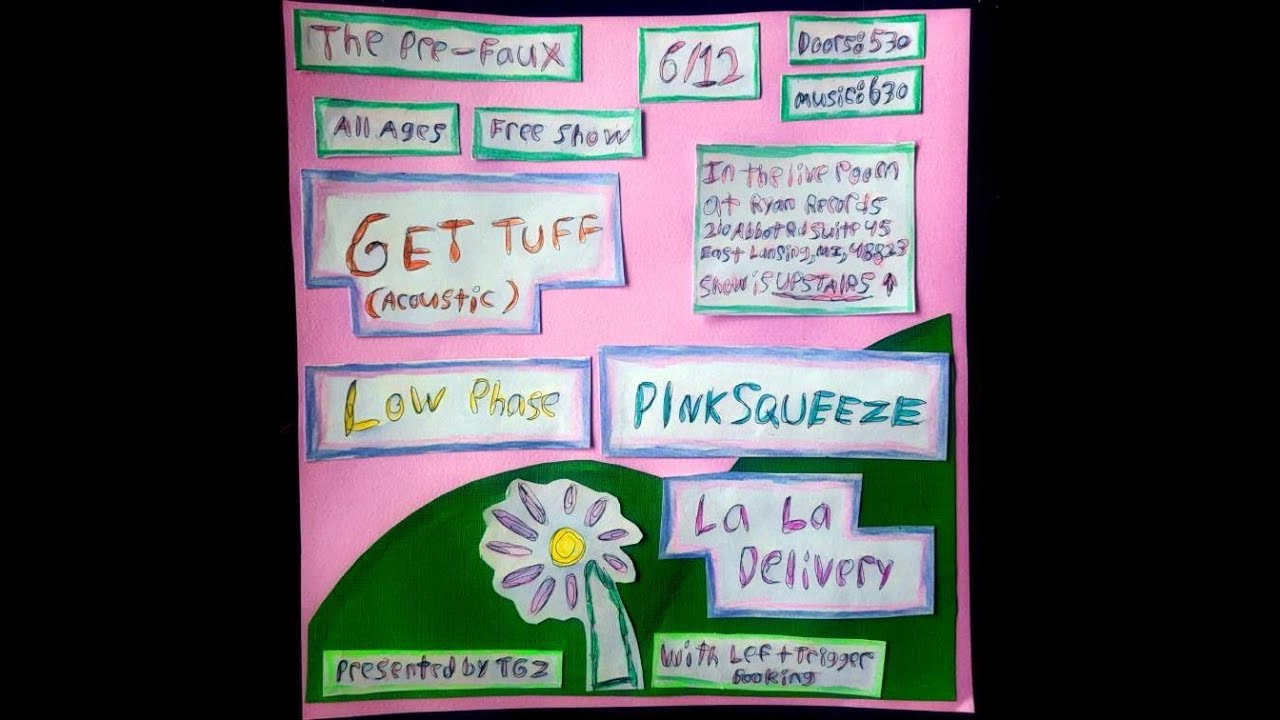 The Pre-Faux
6/12
Doors: 530
Music: 630
All Ages
Free Show
In the live Room
at Ryan Records
210 Abbot Rd Suite 45
East Lansing, MI, 48823
Show is UPSTAIRS ↑
GET TUFF
(Acoustic)
Low Phase
PINKSQUEEZE
La La
Delivery
Presented by TGZ
With Left Trigger
Booking